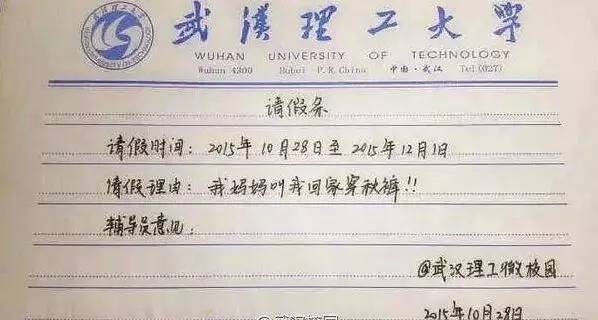 武漢理工大学
WUHAN UNIVERSITY OF TECHNOLOGY
Wuhan 4300 Hubei P.R.China 中国·武汉 Tel(027)
请假条
请假时间：2015年10月28日至2015年12月1日
请假理由：我妈妈叫我回家穿秋裤!!
辅导员意见：
@武汉理工微校园
2015年10月28日